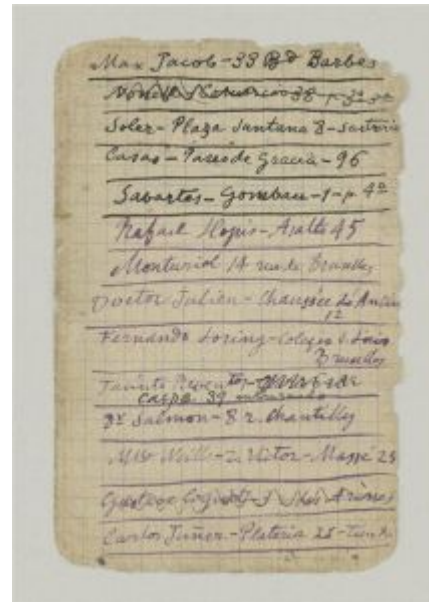 Max Jacob - 33 Bd Barbes
Soler - Plaza Santana 8 - sastreria
Casas - Paseo de Gracia - 96
Sabartes - Gombau - 1 - p. 4º
Rafael Llopis - Asalto 45
Monturiol 14 rue de Bruxelles
Doctor Julien - Chaussée d'Antin
12
Fernando Loring - Colegio S. Luis
Bruselles
Jacinto Reventos -
Caspe 39
Salmon - 8 r. Chantilly
Weill - r. Victor - Massé 25
Gustave Coquiot - 3
Carlos Juñer - Plateria 25 -